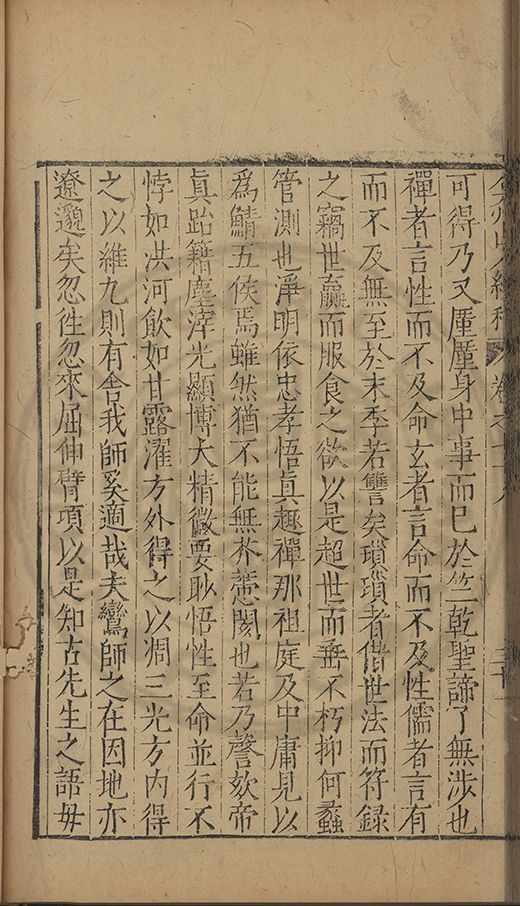 弇州山人續稿 卷之七十八
可得乃又厪厪身中事而已於竺乾聖諦了無涉也
禪者言性而不及命玄者言命而不及性儒者言有
而不及無至於末季若讐矣瑣瑣者借世法而符錄
之竊世羸而服食之欲以是超世而垂不朽抑何蠡
管測也淨明依忠孝悟真趣禪那祖庭及中庸見以
爲鯖五侯焉雖然猶不能無芥蔕閡也若乃謦欬帝
眞跆籍塵滓光顯博大精微要眇悟性至命並行不
悖如洪河飲如甘露濯方外得之以凋三光方內得
之以維九則有舍我師奚適哉夫鸞師之在因地亦
遼邈矣忽徃忽來屈伸臂項以是知古先生之語毋